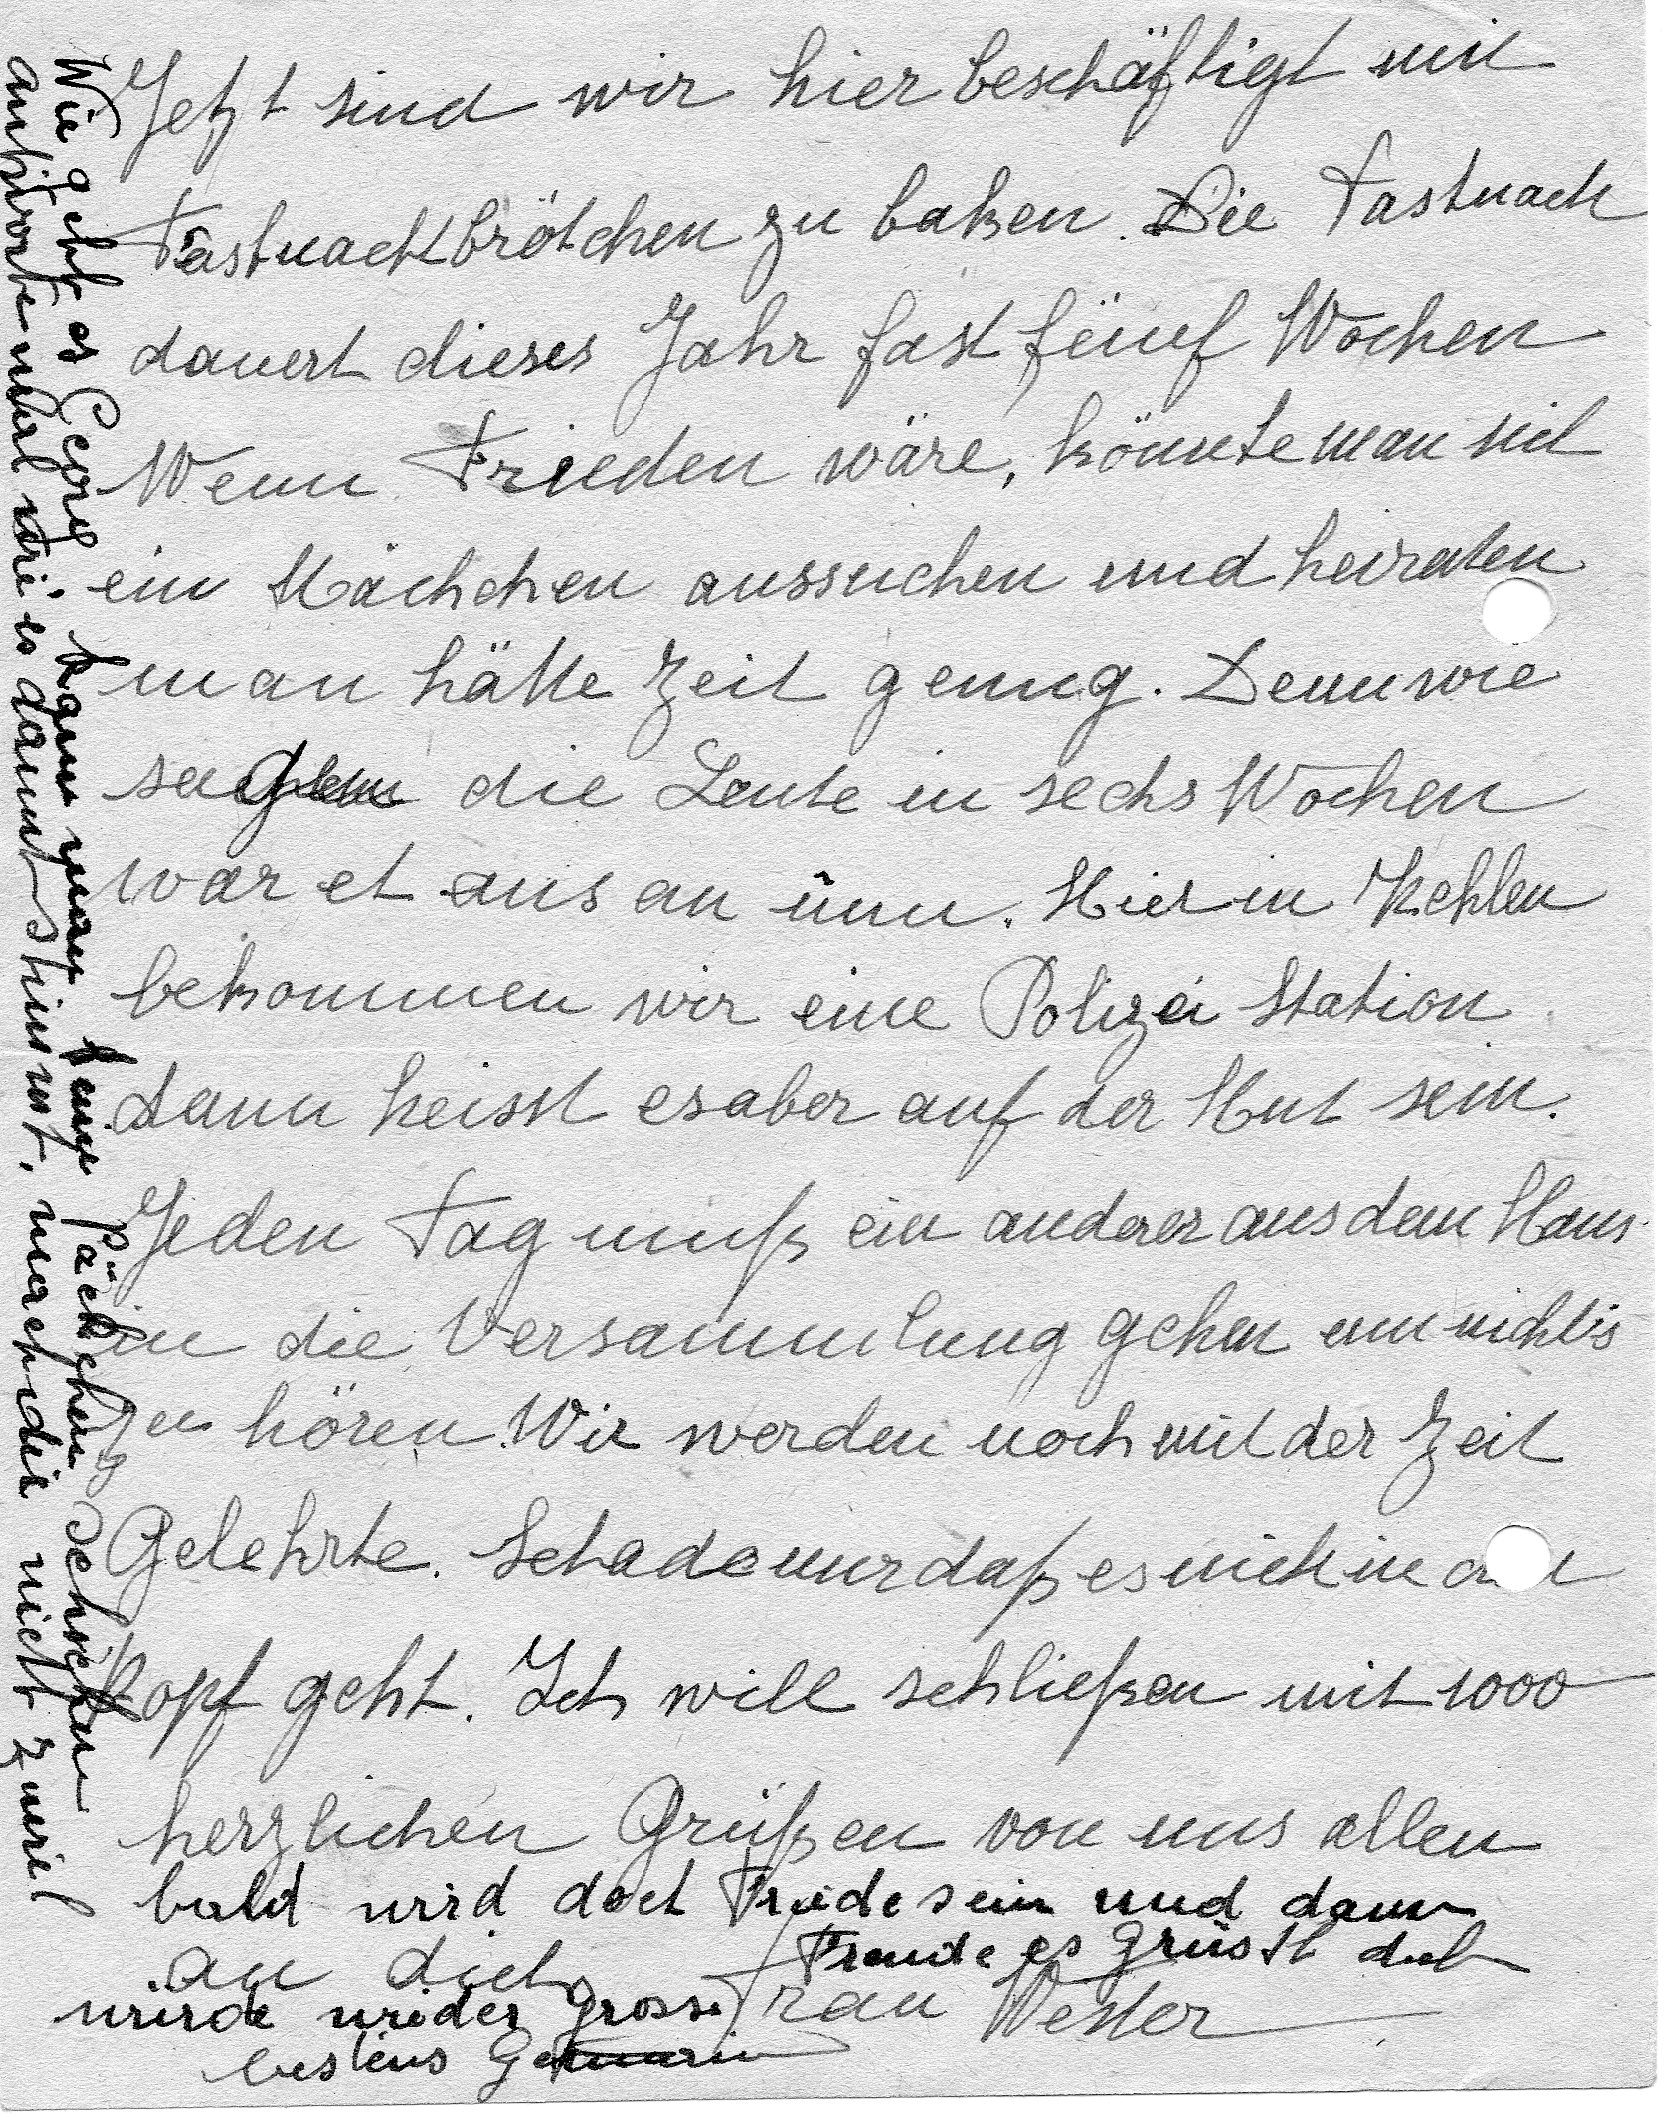 Jetzt sind wir hier beschäftigt mit
Fastnachtbrötchen zu baken. Die Fastnach
dauert dieses Jahr fast fünf Wochen
Wenn Frieden wäre, könnte man sich
ein Mächchen aussuchen und heiraten
man hätte Zeit genug. Denn wie
sagen die Leute in sechs Wochen
war et aus an ünn. Hier in Kehlen
bekommen wir eine Polizei Station
dann heisst es aber auf der Hut sein.
Jeden Tag muß ein anderer aus dem Haus
in die Versammlung gehen um nichts
zu hören. Wir werden noch mit der Zeit
Gelehrte. Schade nur daß es nich in den
Kopf geht. Ich will schließen mit 1000
herzlichen Grüßen von uns allen
bald wird doch Friede sein und dann
Freude es grüsst dich
an dich
würde wider grosse Frau Wester
bestens
Wie geht es kann man Päckchen schicken
antworte mal wie es damit stimmt, nicht